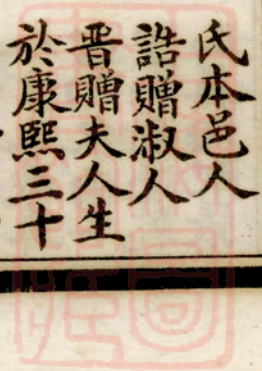 氏本邑人
誥贈淑人
晋贈夫人生
於康熙三十